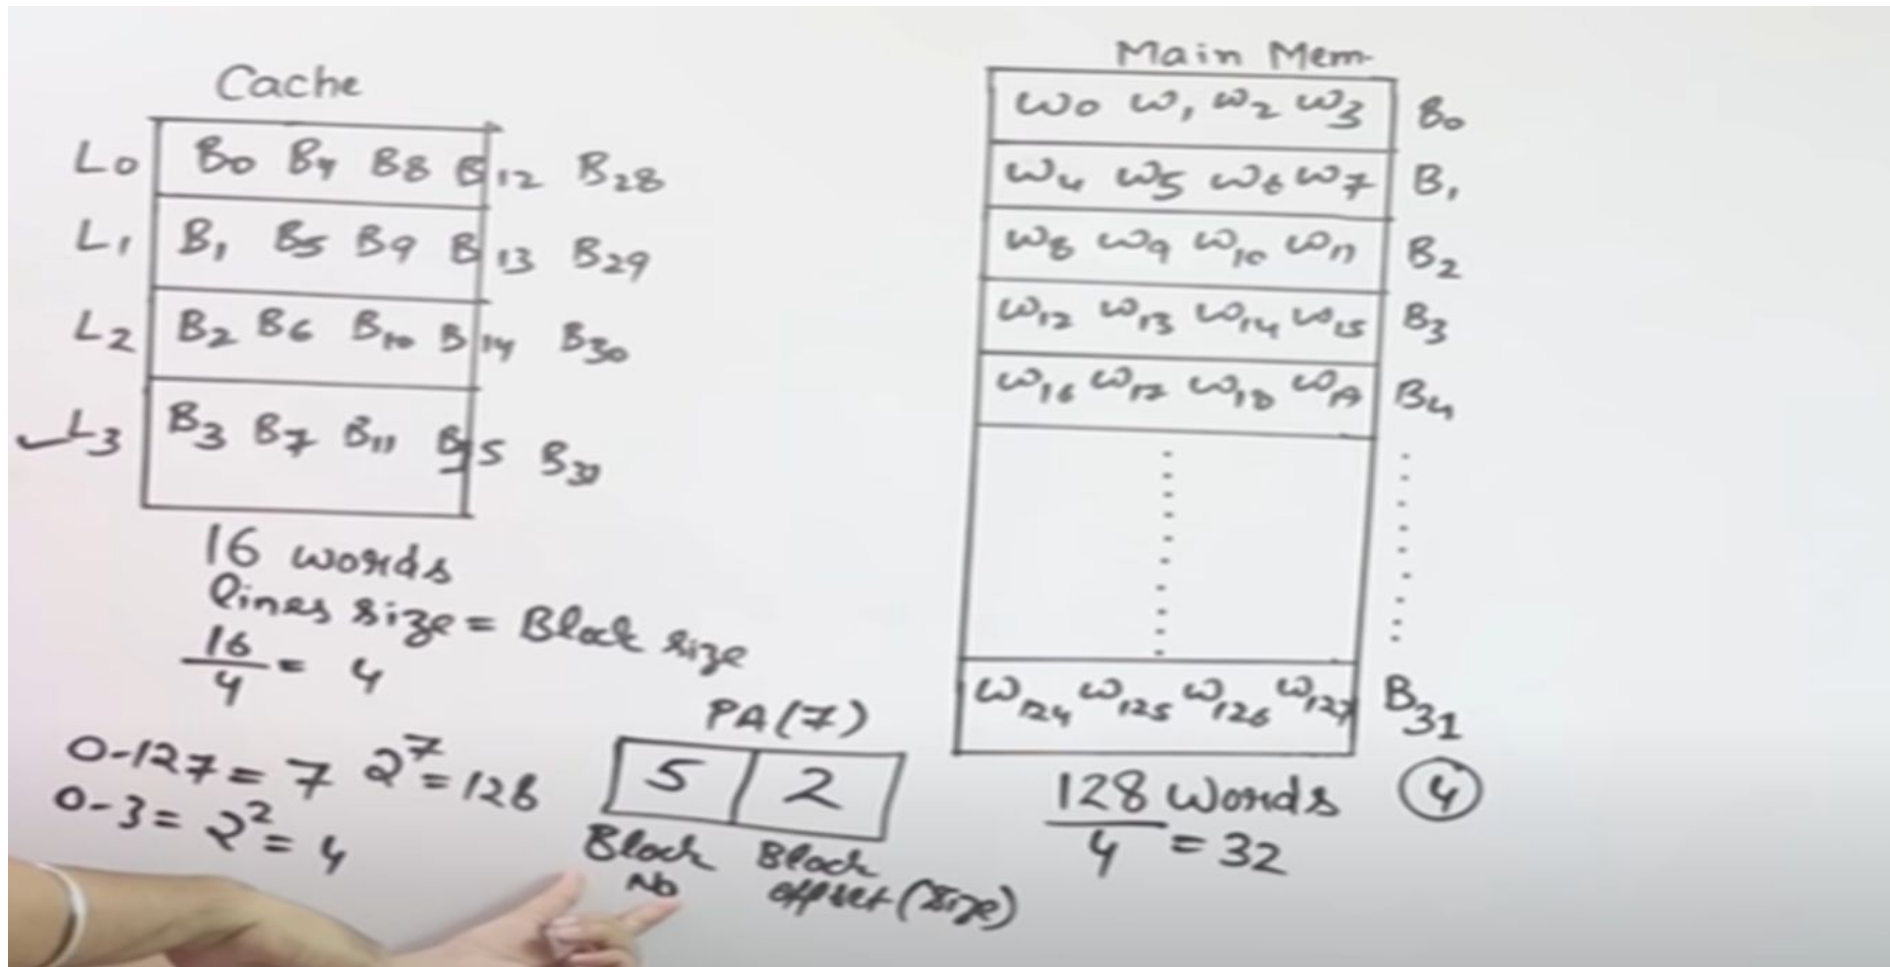 Cache
L0 B0 B4 B8 B12 B28
L1 B1 B5 B9 B13 B29
L2 B2 B6 B10 B14 B30
L3 B3 B7 B11 B15
16 words
lines size = Block size
16/4 = 4
0-127 = 7 2^7 = 128
0-3 = 2^2 = 4
PA(7)
5 2
Block No
Block offset (Size)
Main Mem-
W0 W1 W2 W3 B0
W4 W5 W6 W7 B1
W8 W9 W10 W11 B2
W12 W13 W14 W15 B3
W16 W17 W18 W19 B4
W124 W125 W126 W127 B31
128 Words 4
4 = 32